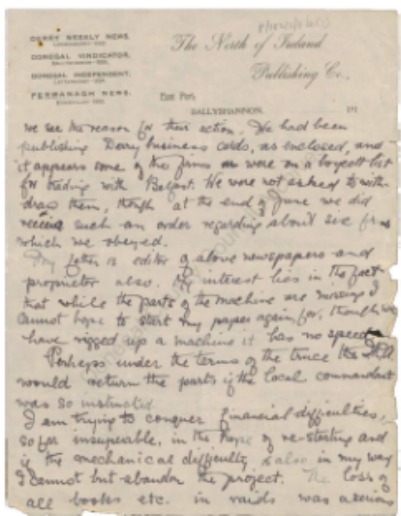 DERRY WEEKLY NEWS,
DONEGAL VINDICATOR,
DONEGAL INDEPENDENT,
FERMANAGH NEWS,
The North of Ireland
Publishing Co.,
East Port,
BALLYSHANNON, 191
we see the reason for their action. We had been
publishing Derry business cards, as enclosed, and
it appears some of the firms were on a boycott list
for trading with Belfast. We were not asked to with-
draw them, though at the end of June we did
receive such an order regarding about six firms
which we obeyed.
My father is editor of above newspapers and
proprietor also. My interest lies in the fact
that while the parts of the machine are missing I
cannot hope to start my paper again, for, though we
have rigged up a machine it has no speed.
Perhaps under the terms of the truce the
would return the parts if the local commandant
was so instructed.
I am trying to conquer financial difficulties,
so far insuperable, in the hope of re-starting and
if the mechanical difficulty is also in my way
I cannot but abandon the project. The loss of
all books etc. in raids was a serious